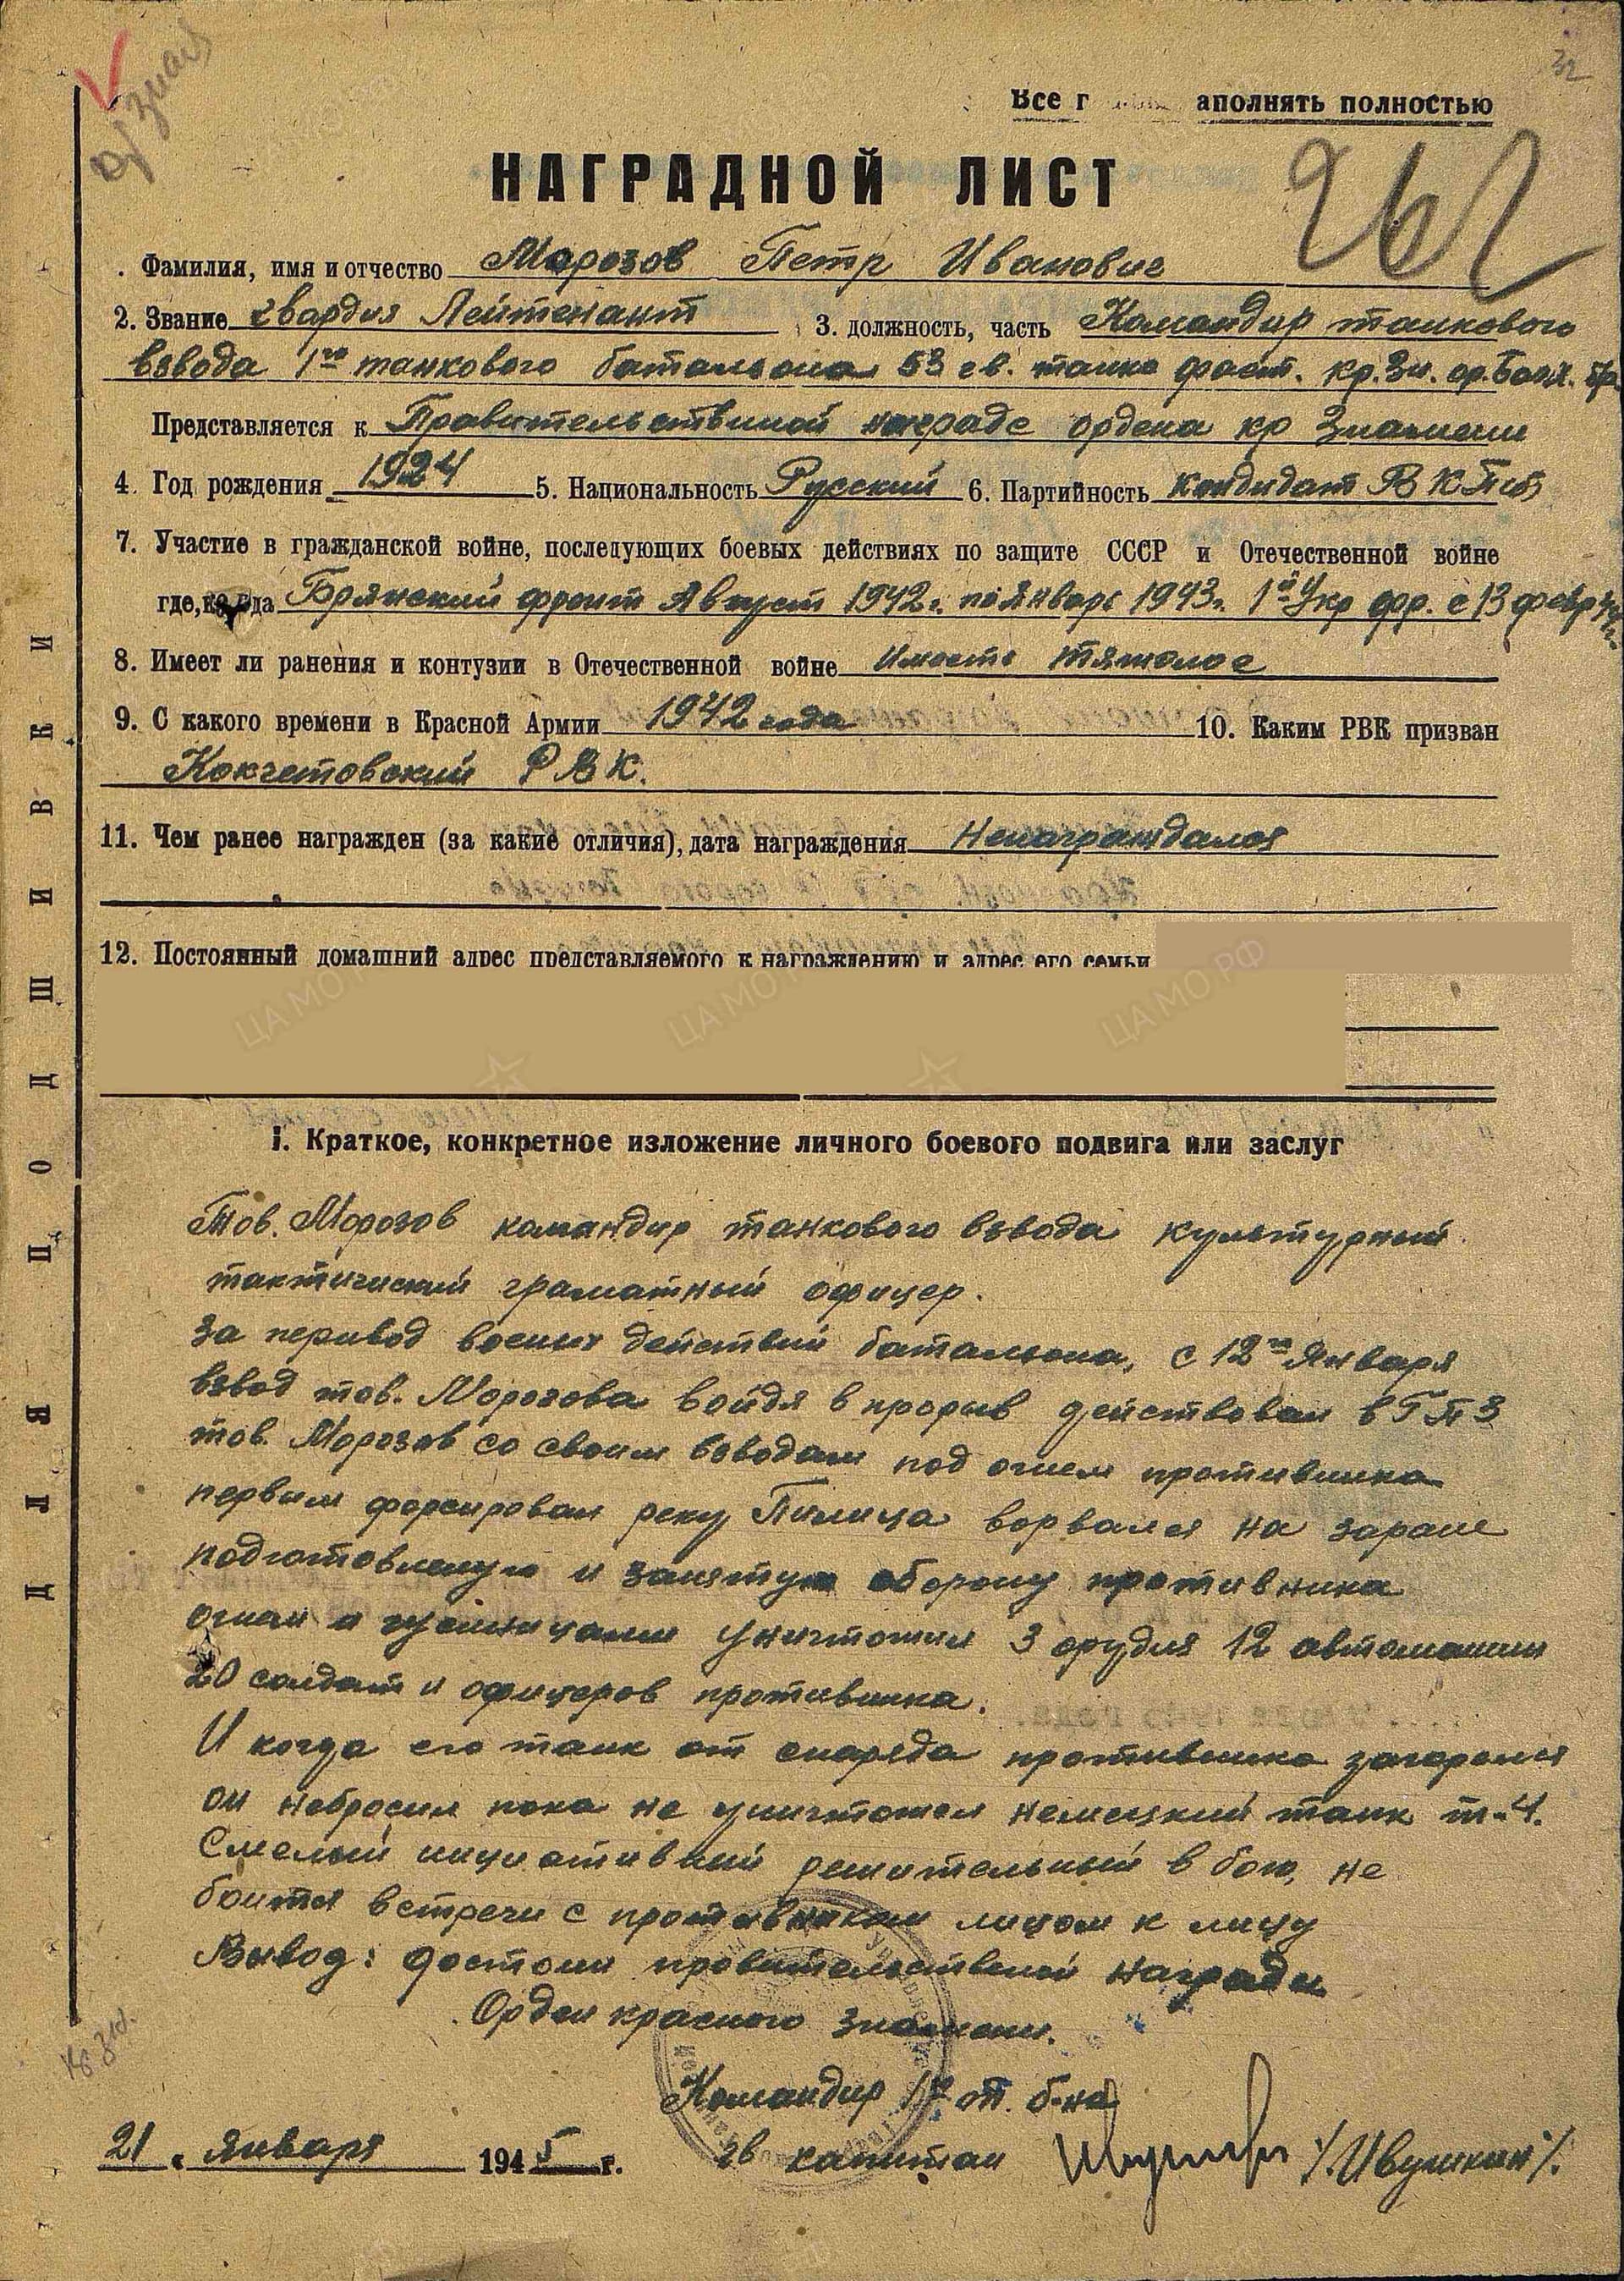 32
кр знам
Все г аполнять полностью
262
НАГРАДНОЙ ЛИСТ
. Фамилия, имя и отчество Морозов Петр Иванович
2. Звание гвардия Лейтенант 3. должность, часть Командир танкового
взвода 1го танкового батальона 53 гв. танко фаст. кр. Зн. ор. Богд. бр
Представляется к Правительствиной награде ордена кр Знамени
4. Год рождения 1924 5. Национальность Русский 6. Партийность кандидат ВКП(б)
7. Участие в гражданской войне, последующих боевых действиях по защите СССР и Отечественной войне
где, когда Брянский фронт Август 1942 г. по Январь 1943 г. 1й Укр фр. с 13 февр
8. Имеет ли ранения и контузии в Отечественной войне Имеет тяжолое
9. С какого времени в Красной Армии 1942 года 10. Каким РВК призван
Кокчетовский РВК.
11. Чем ранее награжден (за какие отличия), дата награждения Ненаграждался
12. Постоянный домашний адрес представляемого к награждению и адрес его семьи
ЦАМО РФ ЦАМО РФ ЦАМО РФ
I. Краткое, конкретное изложение личного боевого подвига или заслуг
Тов. Морозов командир танкового взвода культурный
тактичиский граматный офицер.
За перивод воених действий батальона, с 12го Января
взвод тов. Морозова войдя в прорыв действовал в ГПЗ
тов. Морозов со своим взводам под огнем противника
первым форсировал реку Пилица ворвался на заране
подготовленую и занятую оборону противника
огнем и гусиницами уничтожил 3 орудия 12 автомашин
20 солдат и офицеров противника.
И когда его танк от снаряда противника загорелся
он небросил пока не уничтожел немецкий танк т-4.
Смелый инциотивний решительный в бою, не
боится встречи с противником лицом к лицу
Вывод: достоин правительственой награды
Орден красного знамени.
Командир 1го т. б-на
гв капитан /Ивушкин/.
21 " Января 1945 г.
кр зн.
ДЛЯ ПОДШИВКИ